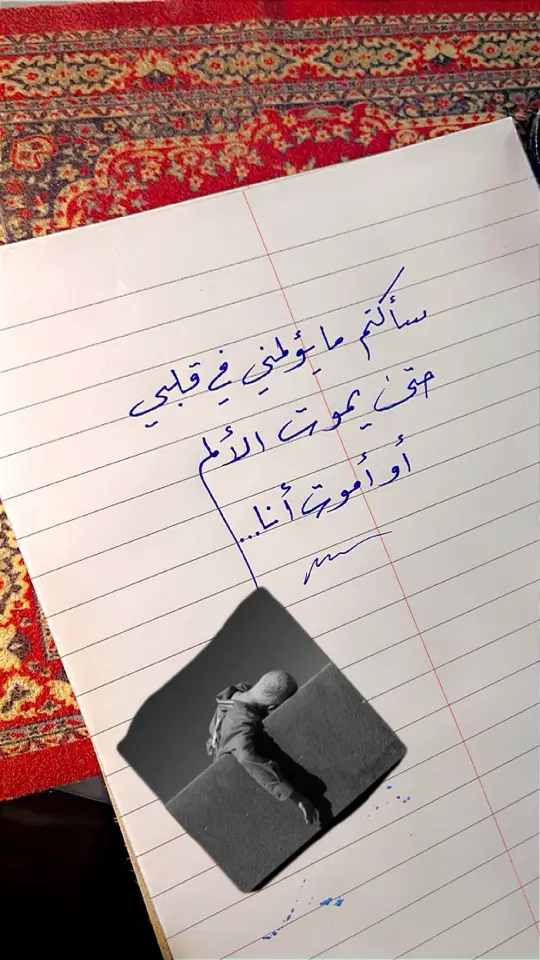 سأكتم ما يؤلمني في قلبي
حتى يموت الألم
أو أموت أنا...